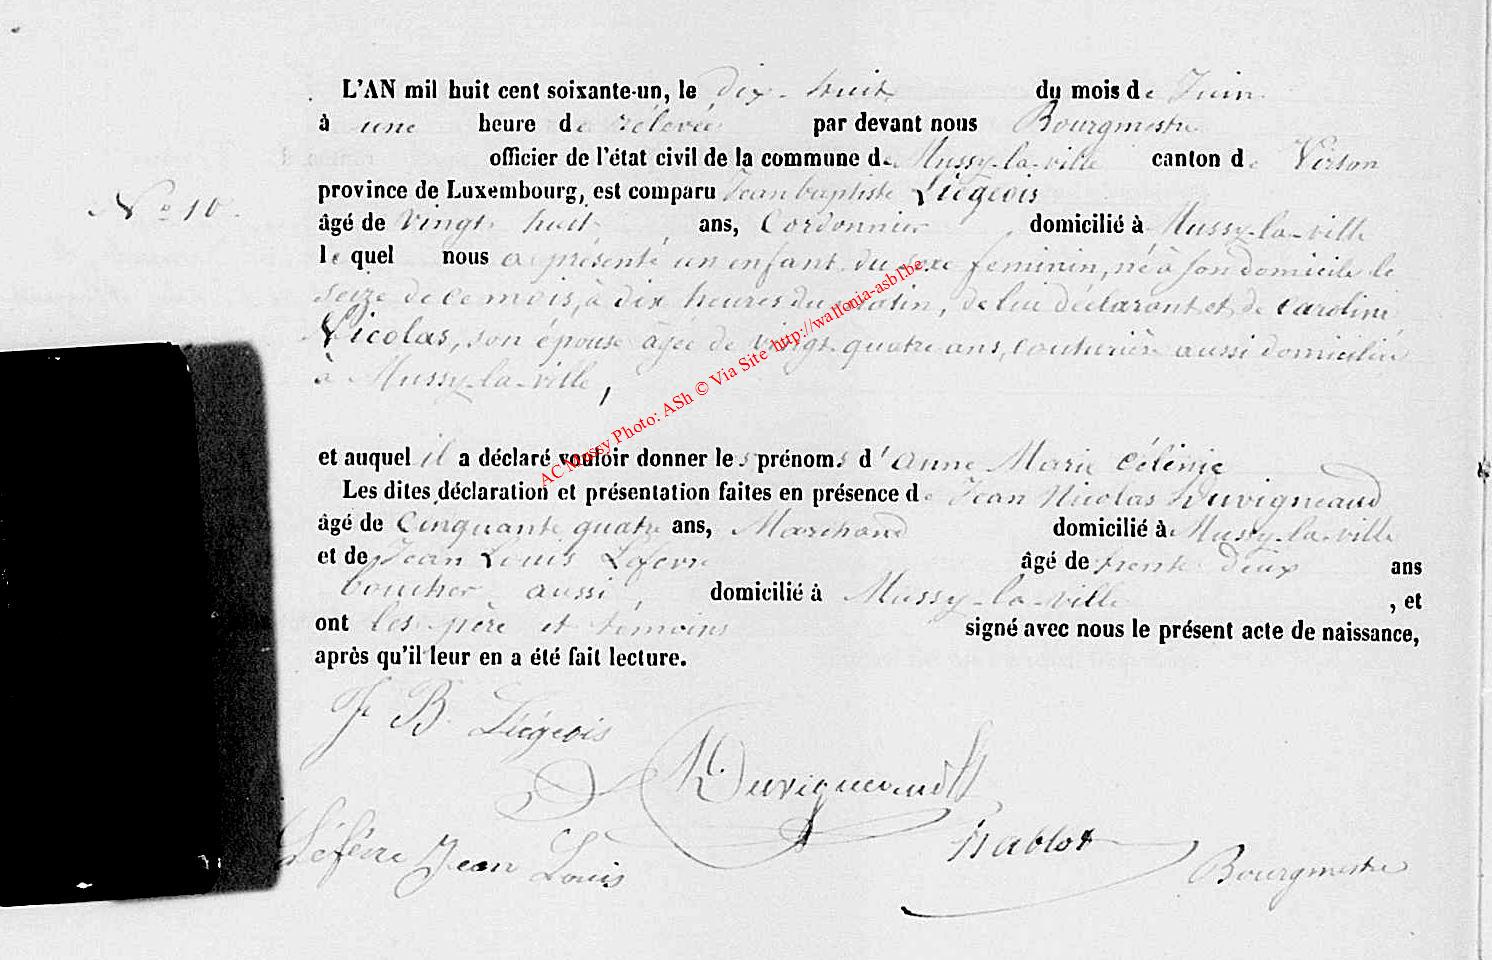 L'AN mil huit cent soixante-un, le dix-huit du mois de Juin
à une heure de rélevée par devant nous Bourgmestre
officier de l'état civil de la commune de Mussy-la-ville canton de Virton
N° 10. province de Luxembourg, est comparu Jean baptiste Liégeois
âgé de vingt huit ans, Cordonnier, domicilié à Mussy-la-ville
lequel nous a présenté un enfant du sexe feminin, né à son domicile le
seize de ce mois, à dix heures du matin, de lui déclarant et de Caroline
Nicolas, son épouse âgée de vingt quatre ans, couturière aussi domiciliée
à Mussy-la-ville,
et auquel il a déclaré vouloir donner les prénoms d'Anne Marie Célinie
Les dites déclaration et présentation faites en présence de Jean Nicolas Duvigneaud
âgé de Cinquante quatre ans, Marchand domicilié à Mussy-la-ville
et de Jean Louis Lefevre âgé de trente deux ans
boucher aussi, domicilié à Mussy-la-ville, et
ont les père et témoins signé avec nous le présent acte de naissance,
après qu'il leur en a été fait lecture.
J B Liégeois
Duvigneaud
Léfévre Jean Louis
Hablot Bourgmestre
AC Mussy Photo: ASh © Via Site http://wallonia-asbl.be